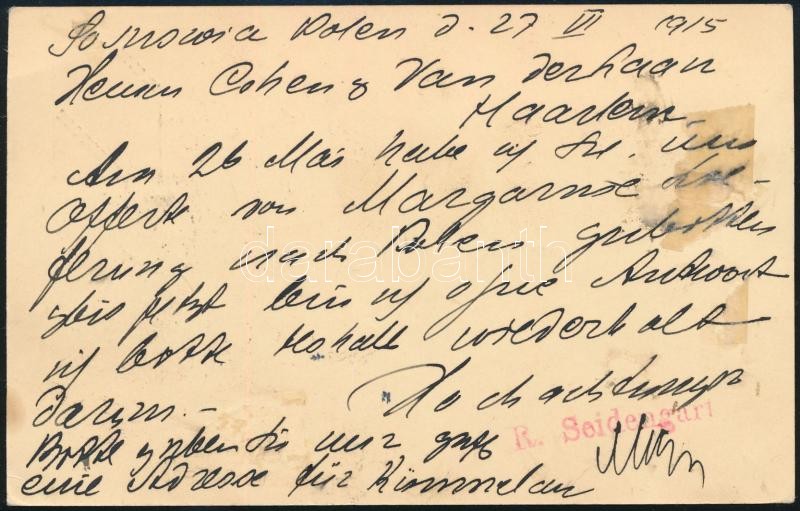 Sosnowice Polen d. 27 VI 1915
Herren Cohen & Van der Haan
Haarlem.
Am 26 Mai habe ich Sie. um
Offerte von Margarine Lie-
ferung nach Polen gebetten
bis jetzt bin ich ohne Antwort
ich bitte deshalb wiederholt
darum.—
Hochachtungs
R. Seidengart
Bitte geben Sie mir gefl
eine Adresse für Kümmel an
darabanth